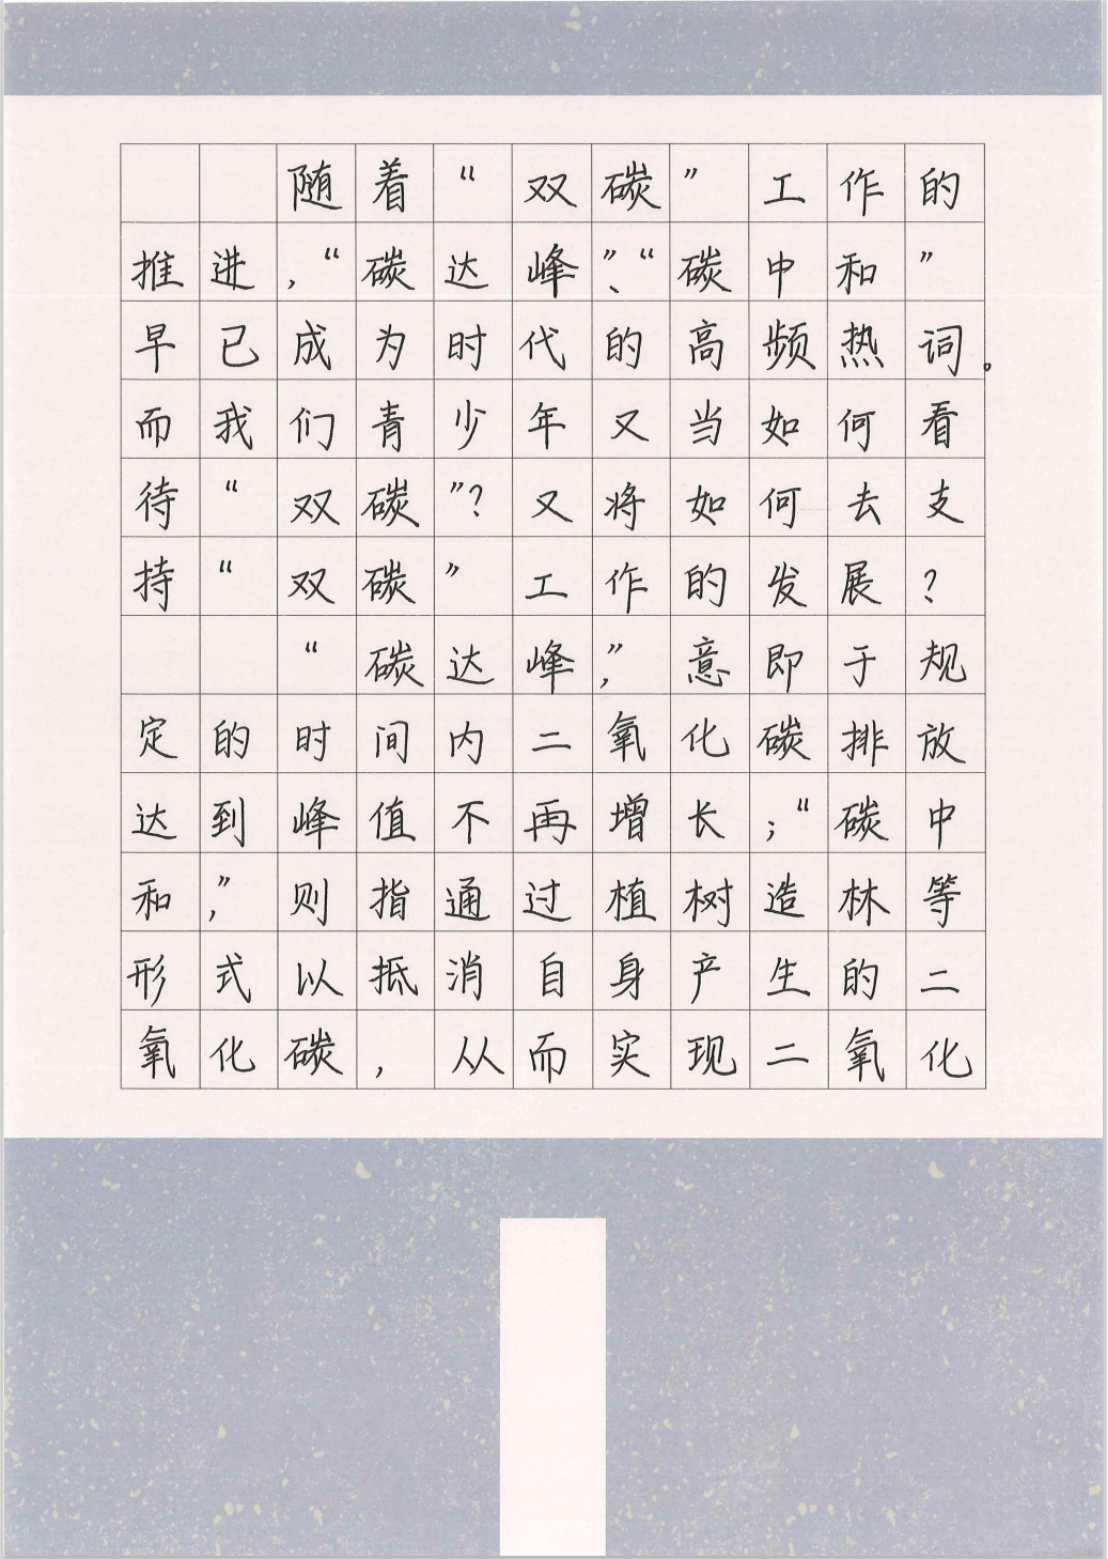 随着“双碳”工作的
推进，“碳达峰”、“碳中和”
早已成为时代的高频热词。
而我们青少年又当如何看
待“双碳”？又将如何去支
持“双碳”工作的发展？
“碳达峰”，意即于规
定的时间内二氧化碳排放
达到峰值不再增长；“碳中
和”，则指通过植树造林等
形式以抵消自身产生的二
氧化碳，从而实现二氧化